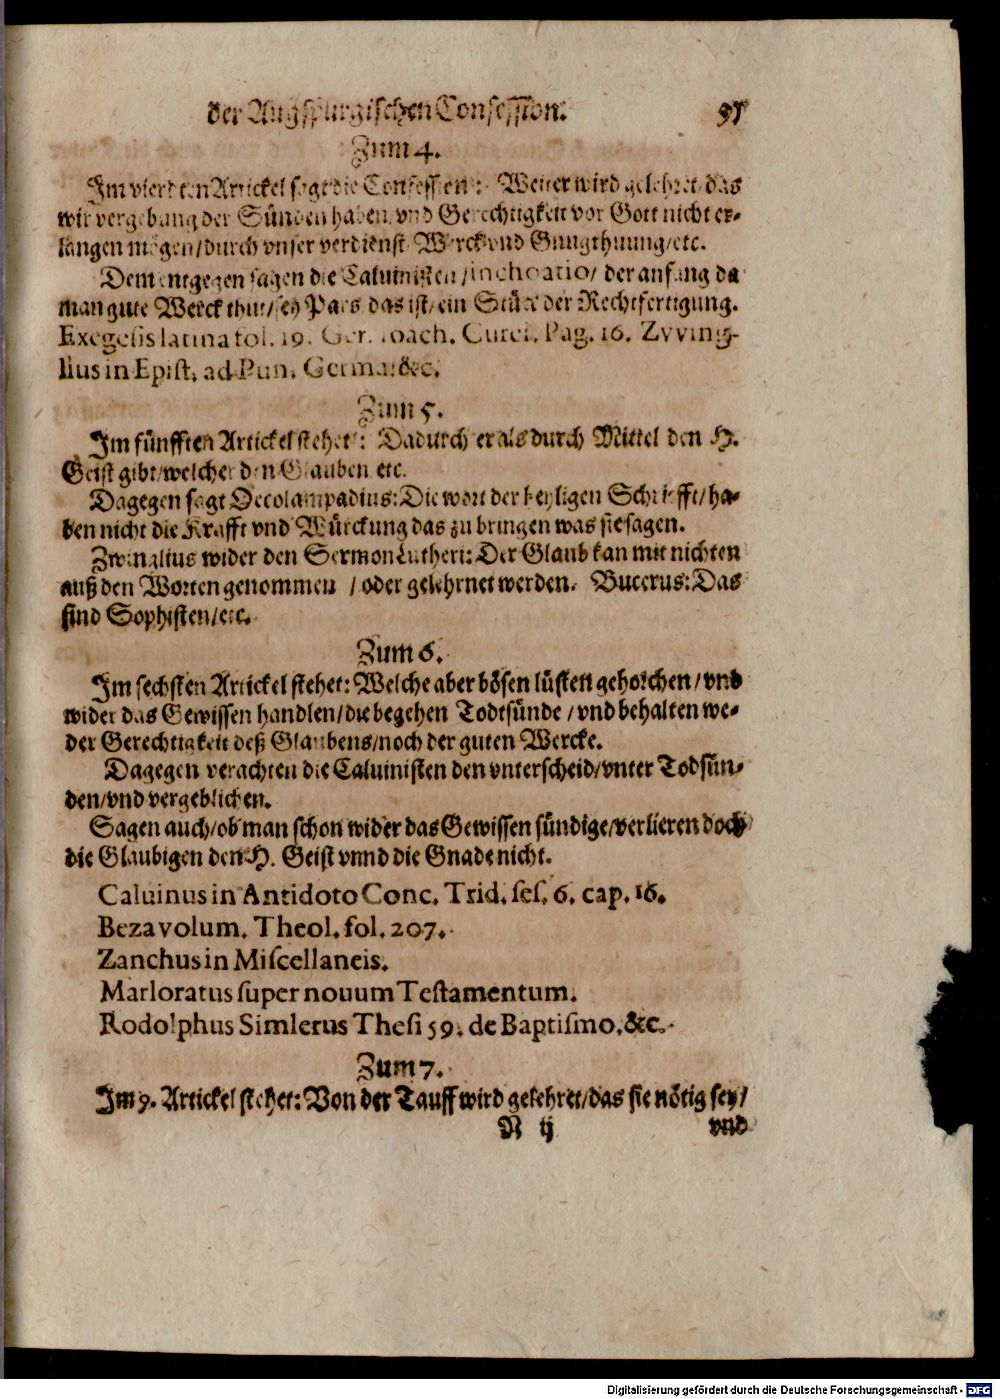 der Augspurgischen Confession. 97
Zum 4.
Im vierdten Artickel sagt die Confession: Weiter wird gelehret das
wir vergebung der Sünden haben vnd Gerechtigkeit vor Gott nicht er-
langen mögen/durch vnser verdienst Werck vnd Gnugthuung/etc.
Dem entgegen sagen die Caluinisten/inchoatio/ der anfang da
man gute Werck thut/sey Pars das ist/ein Stück der Rechtfertigung.
Exegesis latina fol. 19. Ger. Ioach. Curei. Pag. 16. Zvving-
lius in Epist. ad Germa: &c.
Zum 5.
Im fünfften Artickel stehet: Dadurch er als durch Mittel den H.
Geist gibt/welcher den Glauben etc.
Dagegen sagt Oecolampadius: Die wort der heyligen Schriefft/ha-
ben nicht die Krafft vnd Würckung das zu bringen was sie sagen.
Zwinglius wider den Sermon Lutheri: Der Glaub kan mit nichten
auß den Worten genommen / oder gelehrnet werden. Bucerus: Das
sind Sophisten/etc.
Zum 6.
Im sechsten Artickel stehet: Welche aber bösen lüsten gehorchen/vnd
wider das Gewissen handlen/die begehen Todtsünde /vnd behalten we-
der Gerechtigkeit deß Glaubens/noch der guten Wercke.
Dagegen verachten die Caluinisten den vnterscheid/vnter Todsün-
den/vnd vergeblichen.
Sagen auch/ob man schon wider das Gewissen sündige/verlieren doch
die Glaubigen den H. Geist vnnd die Gnade nicht.
Caluinus in Antidoto Conc. Trid. ses. 6. cap. 16.
Beza volum. Theol. fol. 207.
Zanchus in Miscellaneis.
Marloratus super nouum Testamentum.
Rodolphus Simlerus Thesi 59. de Baptismo, &c.
Zum 7.
Im 9. Artickel stehet: Von der Tauff wird gelehret/das sie nötig sey/
N ij vnd
Digitalisierung gefördert durch die Deutsche Forschungsgemeinschaft - DFG